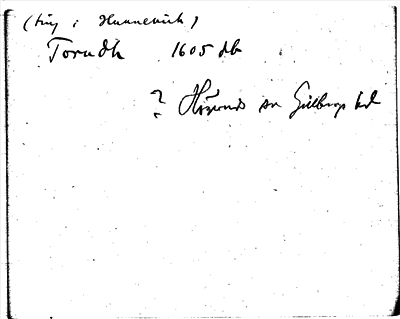 (ting i Hunnevick)
Torudh 1605 db
? Högerud sn Gillbergs hd